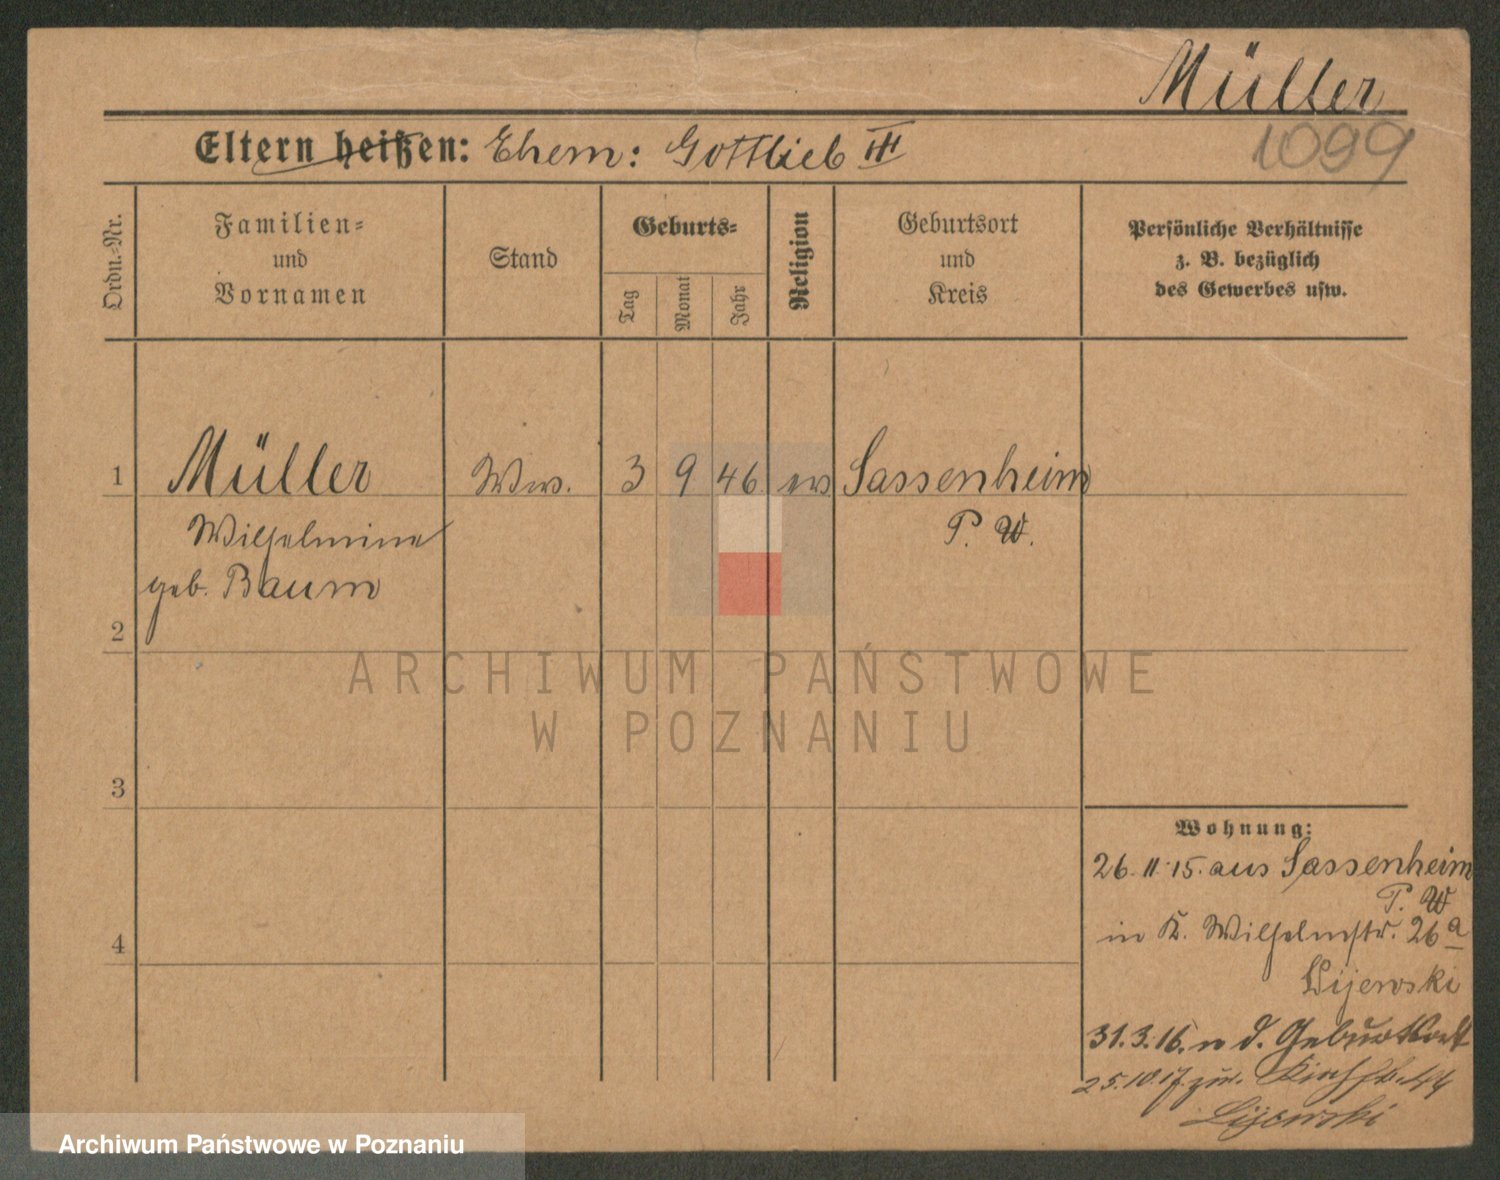 Müller
1099
Eltern heißen: Ehem: Gottlieb III
Ordn.-Nr.
Familien-
und
Vornamen
Stand
Geburts-
Tag
Monat
Jahr
Religion
Geburtsort
und
Kreis
Persönliche Verhältnisse
z. B. bezüglich
des Gewerbes usw.
1
Müller
Ww.
3
9
46
ev
Sassenheim
Wilhelmine
P. W.
geb. Baum
2
3
4
Wohnung:
26.11.15. aus Sassenheim
P. W
in K. Wilhelmstr. 26a
Lijewski
31.3.16. n d. Geburtsort
25.10.17 zur.
Lijewski
ARCHIWUM PAŃSTWOWE
W POZNANIU
Archiwum Państwowe w Poznaniu